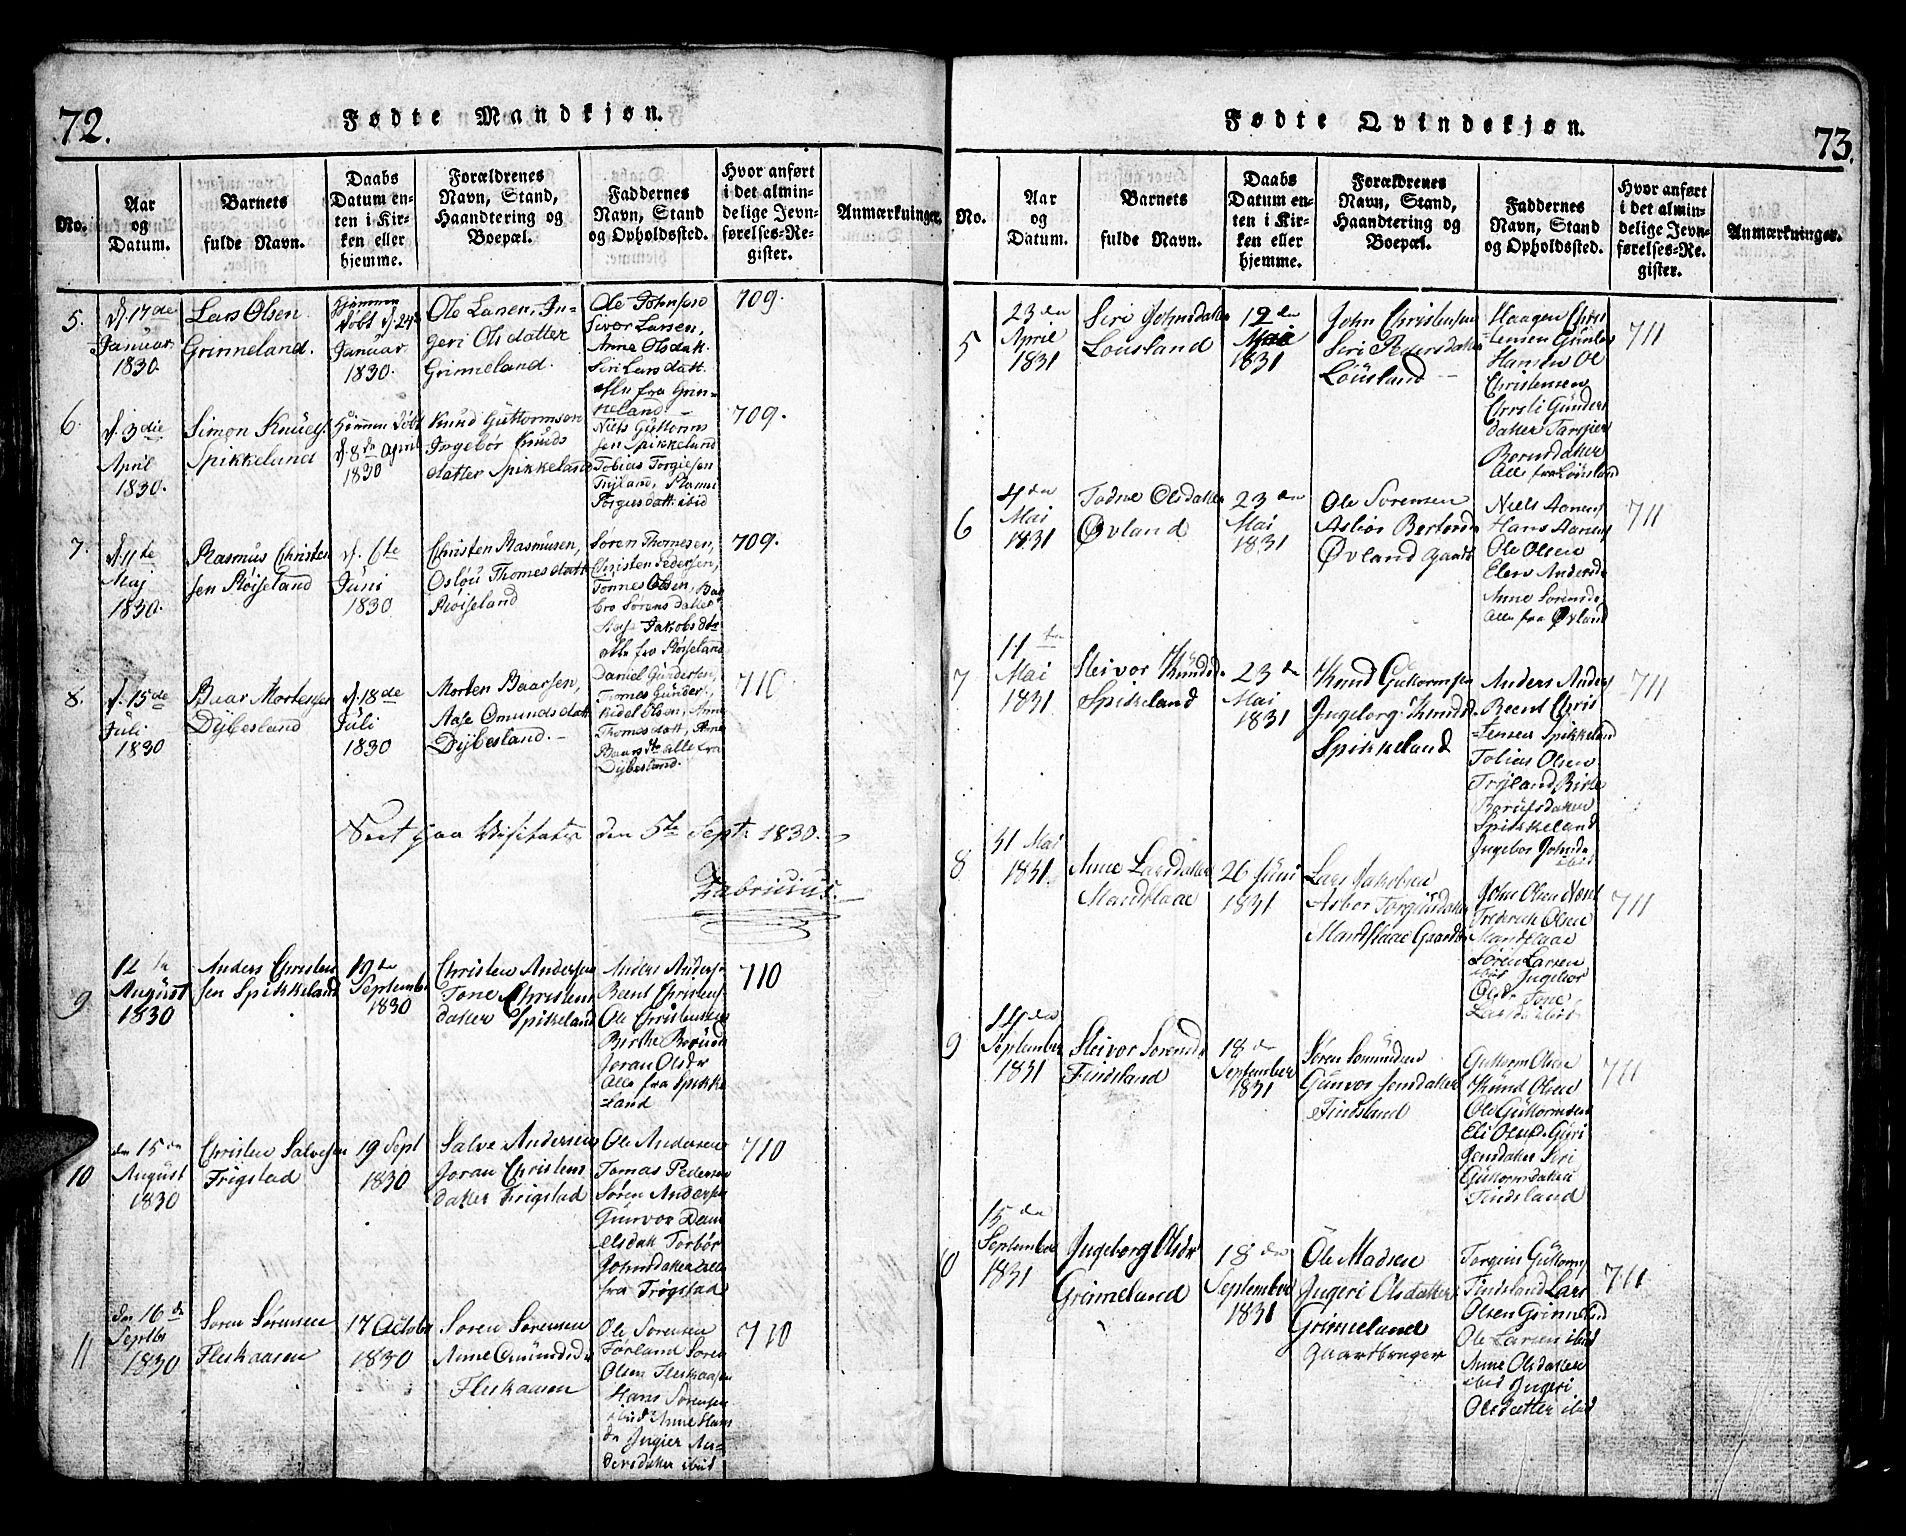 72.
Fødte Mandkjøn.
No.
Aar
og
Datum.
Barnets
fulde Navn.
Daabs
Datum en-
ten i Kir-
ken eller
hjemme.
Forældrenes
Navn, Stand,
Haandtering og
Boepæl.
Faddernes
Navn, Stand
og Opholdssted.
Hvor anført
i det almin-
delige Jevn-
førelses-Re-
gister.
Anmærkninger.
5.
d. 17de
Januar
1830.
Lars Olsen
Grimeland.
hjemme
døbt d. 24de
Januar
1830.
Ole Larsen, In-
geri Olsdatter
Grimeland.
Ole
Sivor Larsen,
Anne Olsdatt.
Siri Larsdatt.
alle fra Grim-
meland.
709.
6.
d. 3die
April
1830.
Simon Knuds.
Spikkeland
hjemme døbt
d. 8de April
1830
Knud Guttormsen
Ingebor Knuds
datter Spikkeland
Niels Guttorms
sen Spikkeland
Tobias Torgiesen
Tryland,
Torgersdatt. ibid
709.
7.
d. 11te
Maj
1830.
Rasmus Christen
sen Røiseland
d. 6te
Juni
1830
Christen Rasmusen,
Oslou Thomesdatt.
Røiseland
Søren Thomesen,
Christen Pedersen,
Tønnes Olsen, Bar
bro Sørensdatter
Jakobsdtr
alle fra Røiseland
709.
8.
d. 15de
Juli
1830
Baar Mortensen
Dybesland
d. 18de
Juli
1830
Morten Baarsen,
Aase Omundsdatt.
Dybesland.
Daniel Gundersen,
Tomes Gunders.,
Kidel Olsen, Anne
Thomesdatt, Anne
Baarsdtr alle fra
Dybesland.
710
Seet paa Visitatsen den 5te Septr. 1830.
Fabricius.
9
12te
August
1830
Anders Christen
sen Spikkeland
19de
September
1830
Christen Andersen
Tone Christens
datter Spikeland
Anders Andersen
Beent Christens.
Ole Christensen
Birthe
Joran Olsdr
Alle fra Spikke
land
710
10
den 15de
August
1830
Christen Salvesen
Frigstad
19 Sept
1830
Salve Andersen
Joran Christens
datter Frigstad
Ole Andersen
Tomas Pedersen
Søren Andersen
Gunvor Dani
elsdatt Torbør
Johnsdatter alle
fra Frøgstad
710
11
den 16de
Septbr
1830
Soren Sørensen
Fleskaasen
17 October
1830
Soren Sørensen
Anne Omundsdr
Fleskaasen
Ole Sørensen
Førland Søren
Olsen Fleskaasen
Hans Sørensen
ibid Anne Hans
dr Ingier An-
dersdatter ibid
710
73.
Fødte Qvindekjøn.
No.
Aar
og
Datum.
Barnets
fulde Navn.
Daabs
Datum en-
ten i Kir-
ken eller
hjemme.
Forældrenes
Navn, Stand,
Haandtering og
Boepæl.
Faddernes
Navn, Stand
og Opholdssted.
Hvor anført
i det almin-
delige Jevn-
førelses-Re-
gister.
Anmærkninger.
5
23de
April
1831
Siri Johnsdatter
Lousland
12te
Mai
1831
John Christensen
Siri Pedersdatter
Lousland
Haagen Chris
tensen
Hansen Ol
Christensen
Christi Gunders
datter
Berntsdatter
Alle fra Lousland
711
6
4de
Mai
1831
Todne Olsdatter
Øvland
23de
Mai
1831
Ole Sørensen
Asbiør
Øvland Gaardb
Niels Aanens
Hans Aanens
Ole Olsen
Elen Andersdr
Anne Sørensdr
Alle fra Øvland
711
7
11te
Mai
1831
Sleivor Knudsd.
Spikeland
23de
Mai
1831
Knud Guttormsen
Ingeborg Knudsd
Spikkeland
Anders Anders
Beent Chris
tensen Spikkeland
Tobias Olsen
Tryland Birte
Spikkeland
Ingebor Johnsdr
ibid
711
8
31 Mai
1831.
Anne Larsdatter
Mandflaae
26 Juni
1831
Lars Jakobsen
Asbor Torgiusdatter
Mandflaae Gaardb
John Olsen
Frederik Olsen
Mandflaae
Søren Larsen
ibid Ingebor
Olsdr Tone
Larsdr ibid
711
9
14de
September
1831
Sleivor Sørensdr
Findsland
18de
September
1831
Søren Somundsen
Gunvor Jensdatter
Findsland
Guttorm Olsen
Knud Olsen
Ole Guttormsen
Eli Olsdr Guri
Jensdatter Siri
Guttormsdatter
Findsland
711
10
15de
September
1831
Ingeborg Olsdr
Grimeland
18de
September
1831
Ole Madsen
Ingeri Olsdatter
Grimeland
Gaardbruger
Torgius Guttorms
Findsland Lars
Olsen Grimeland
Ole Larsen ibid
Anne Olsdatter
ibid Ingeri
Olsdatter ibid
711